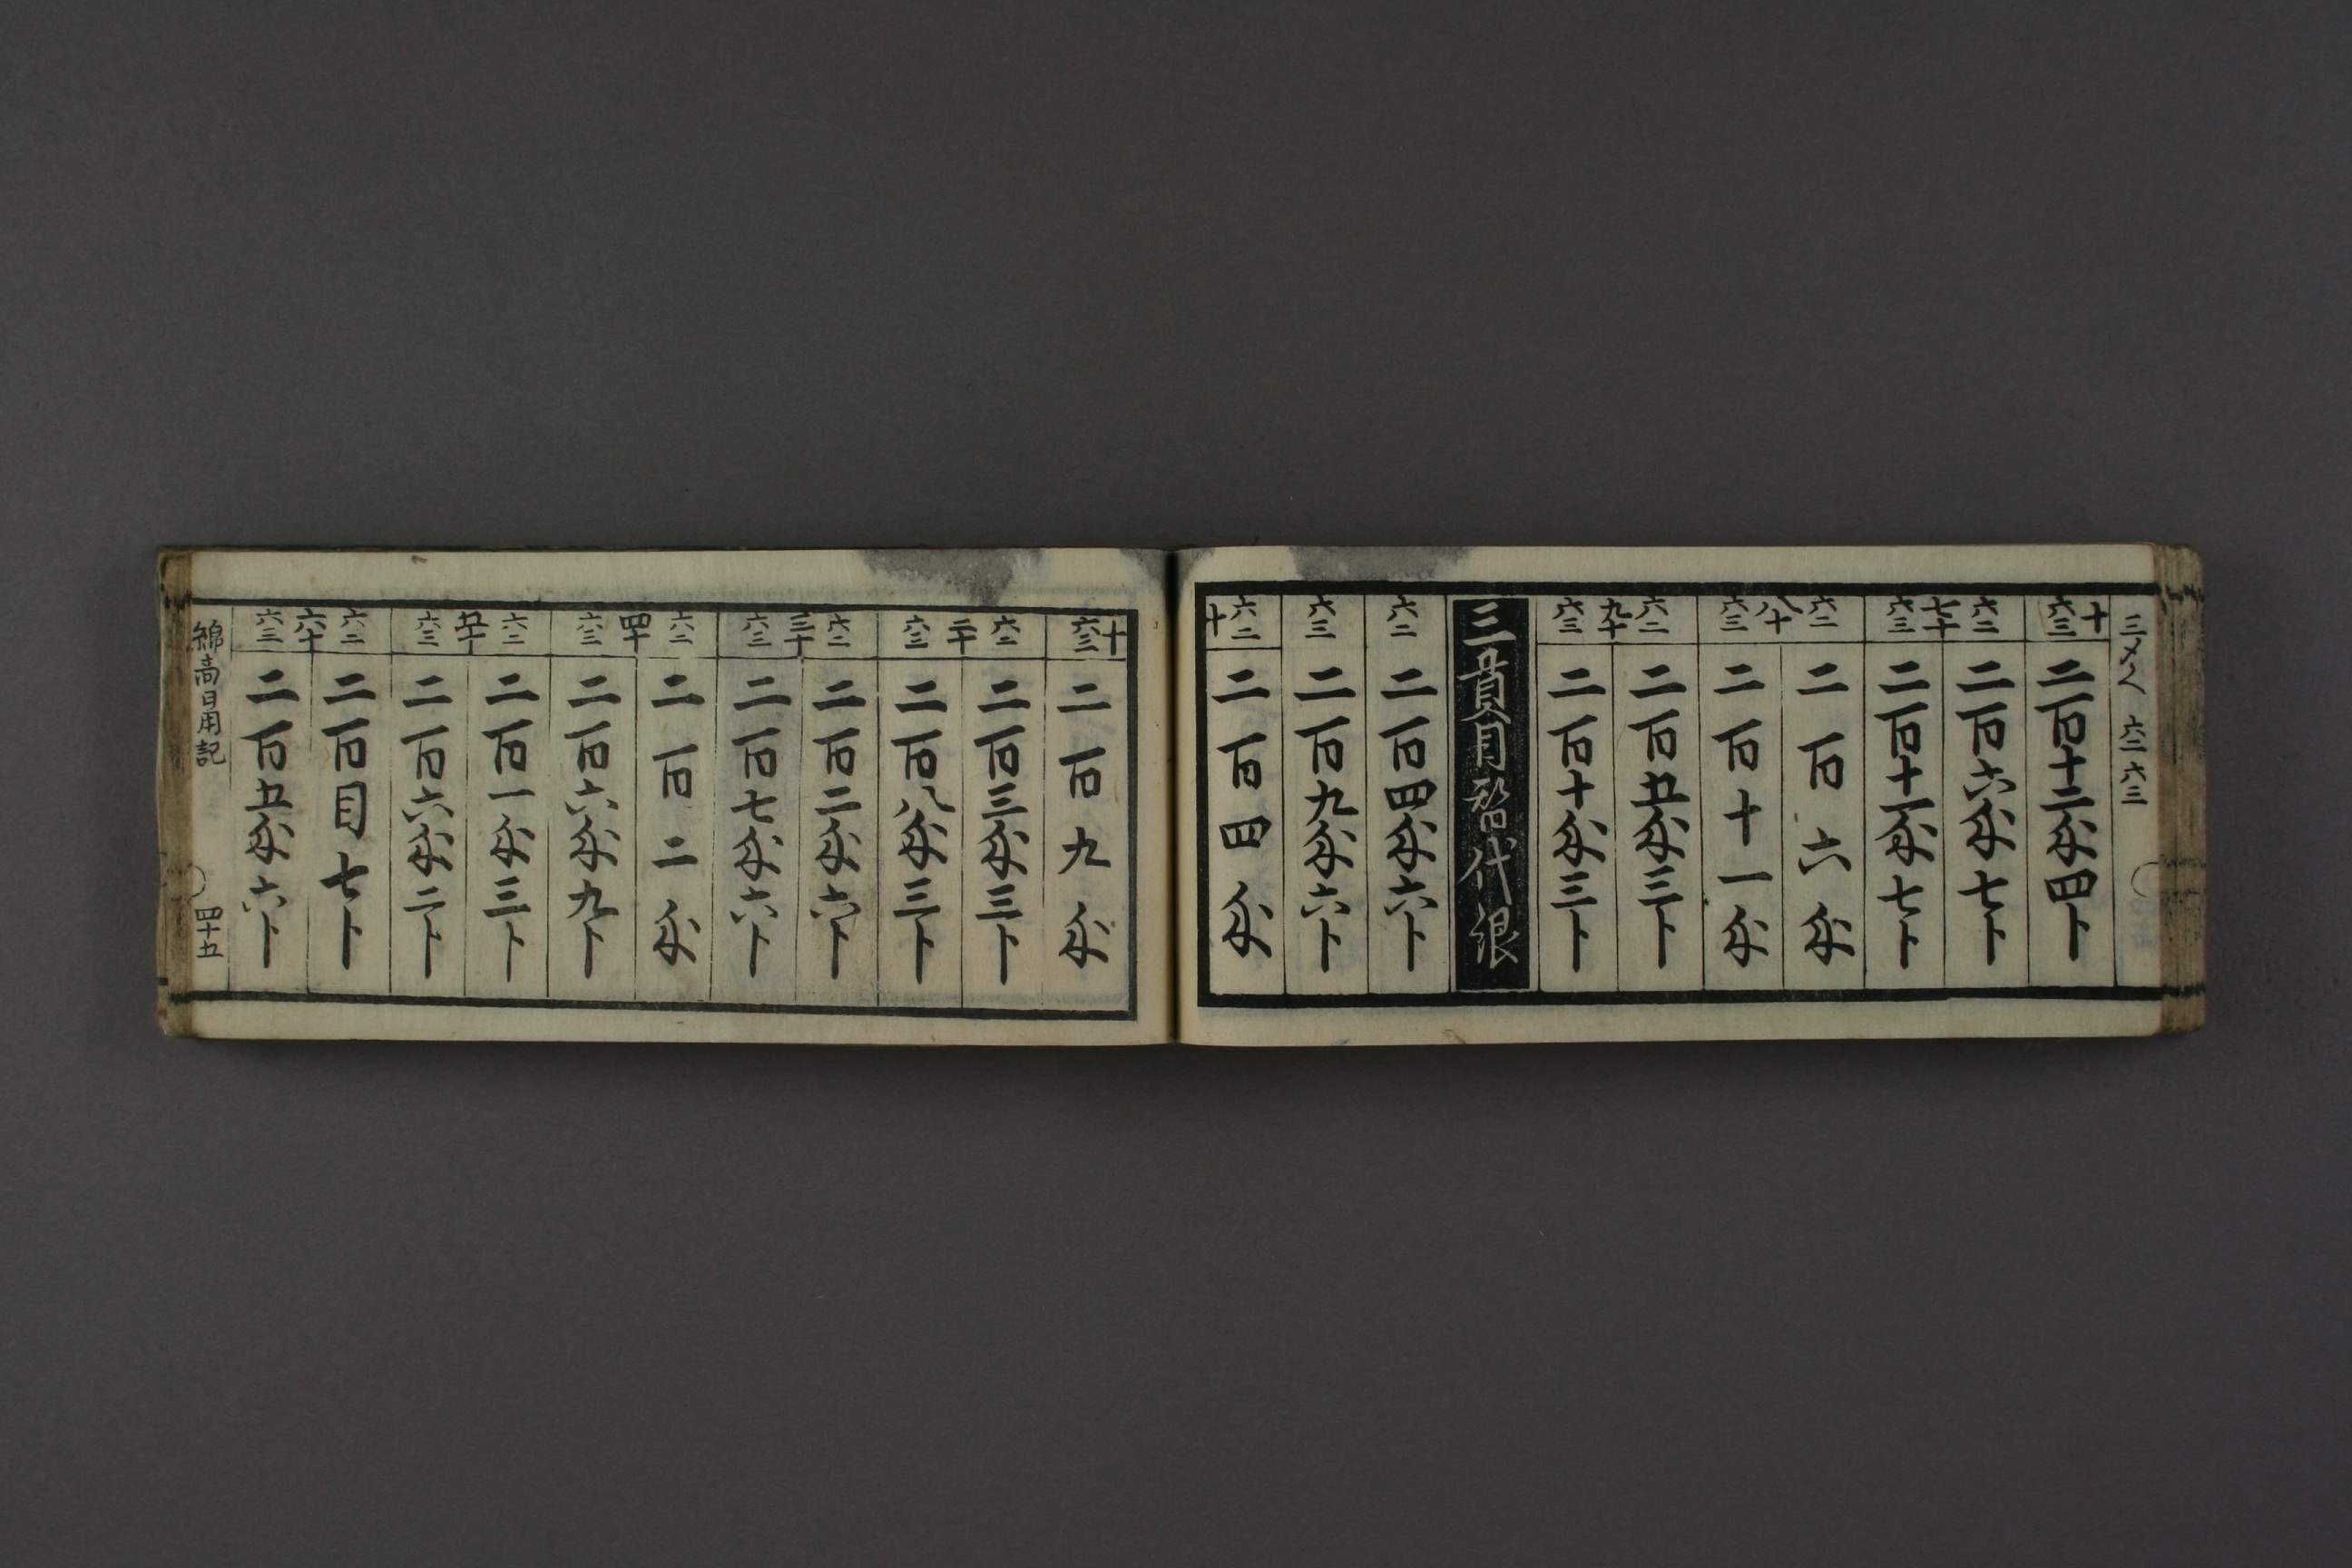 三〆く 六二 六三
十 六三 二百十二匁四卜
六二 二百六匁七卜
七十
六三 二百十一匁七卜
六二 二百六匁
八十
六三 二百十一匁
六二 二百五匁三卜
九十
六三 二百十匁三卜
三貫目替代銀
六二 二百四匁六卜
六三 二百九匁六卜
六二 十 二百四匁
十 六三 二百九匁
六二 二百三匁三卜
二十
六三 二百八匁三卜
六二 二百二匁六卜
三十
六三 二百七匁六卜
六二 二百二匁
四十
六三 二百六匁九卜
六二 二百一匁三卜
五十
六三 二百六匁二卜
六二 二百目七卜
六十
六三 二百五匁六卜
綿商日用記 四十五